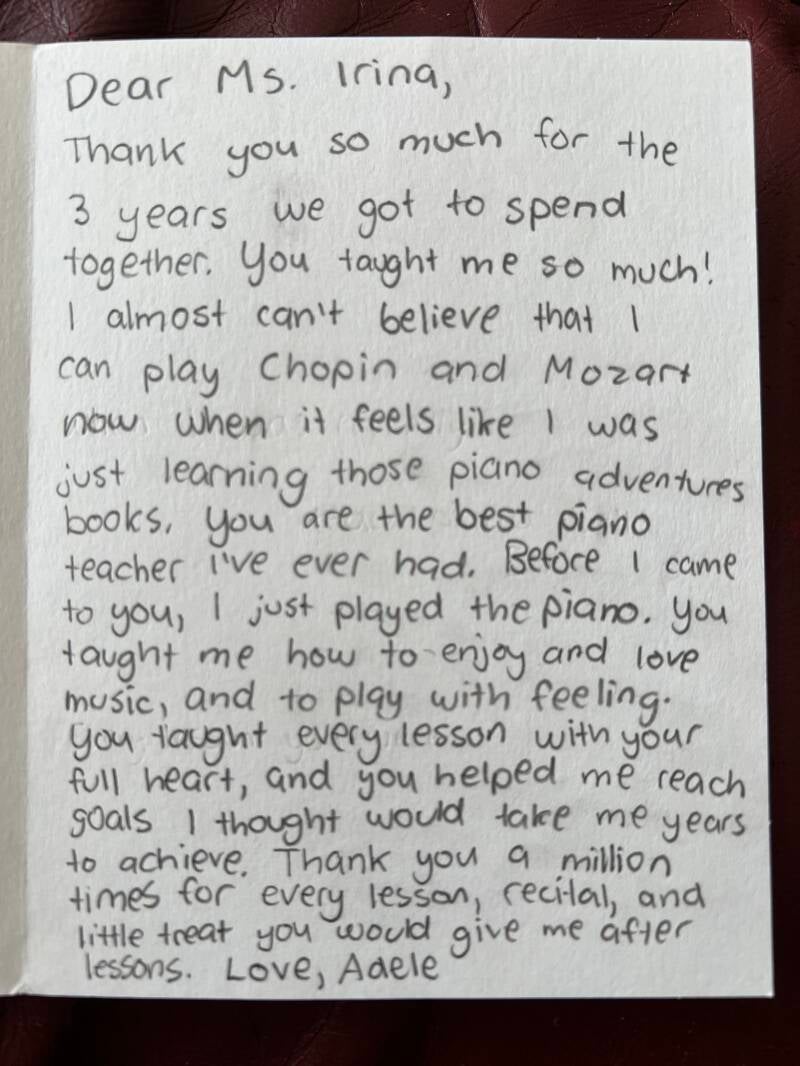 Dear Ms. Irina,
Thank you so much for the
3 years we got to spend
together. You taught me so much!
I almost can't believe that I
can play Chopin and Mozart
now when it feels like I was
just learning those piano adventures
books. You are the best piano
teacher I've ever had. Before I came
to you, I just played the piano. You
taught me how to enjoy and love
music, and to play with feeling.
You taught every lesson with your
full heart, and you helped me reach
goals I thought would take me years
to achieve. Thank you a million
times for every lesson, recital, and
little treat you would give me after
lessons. Love, Adele